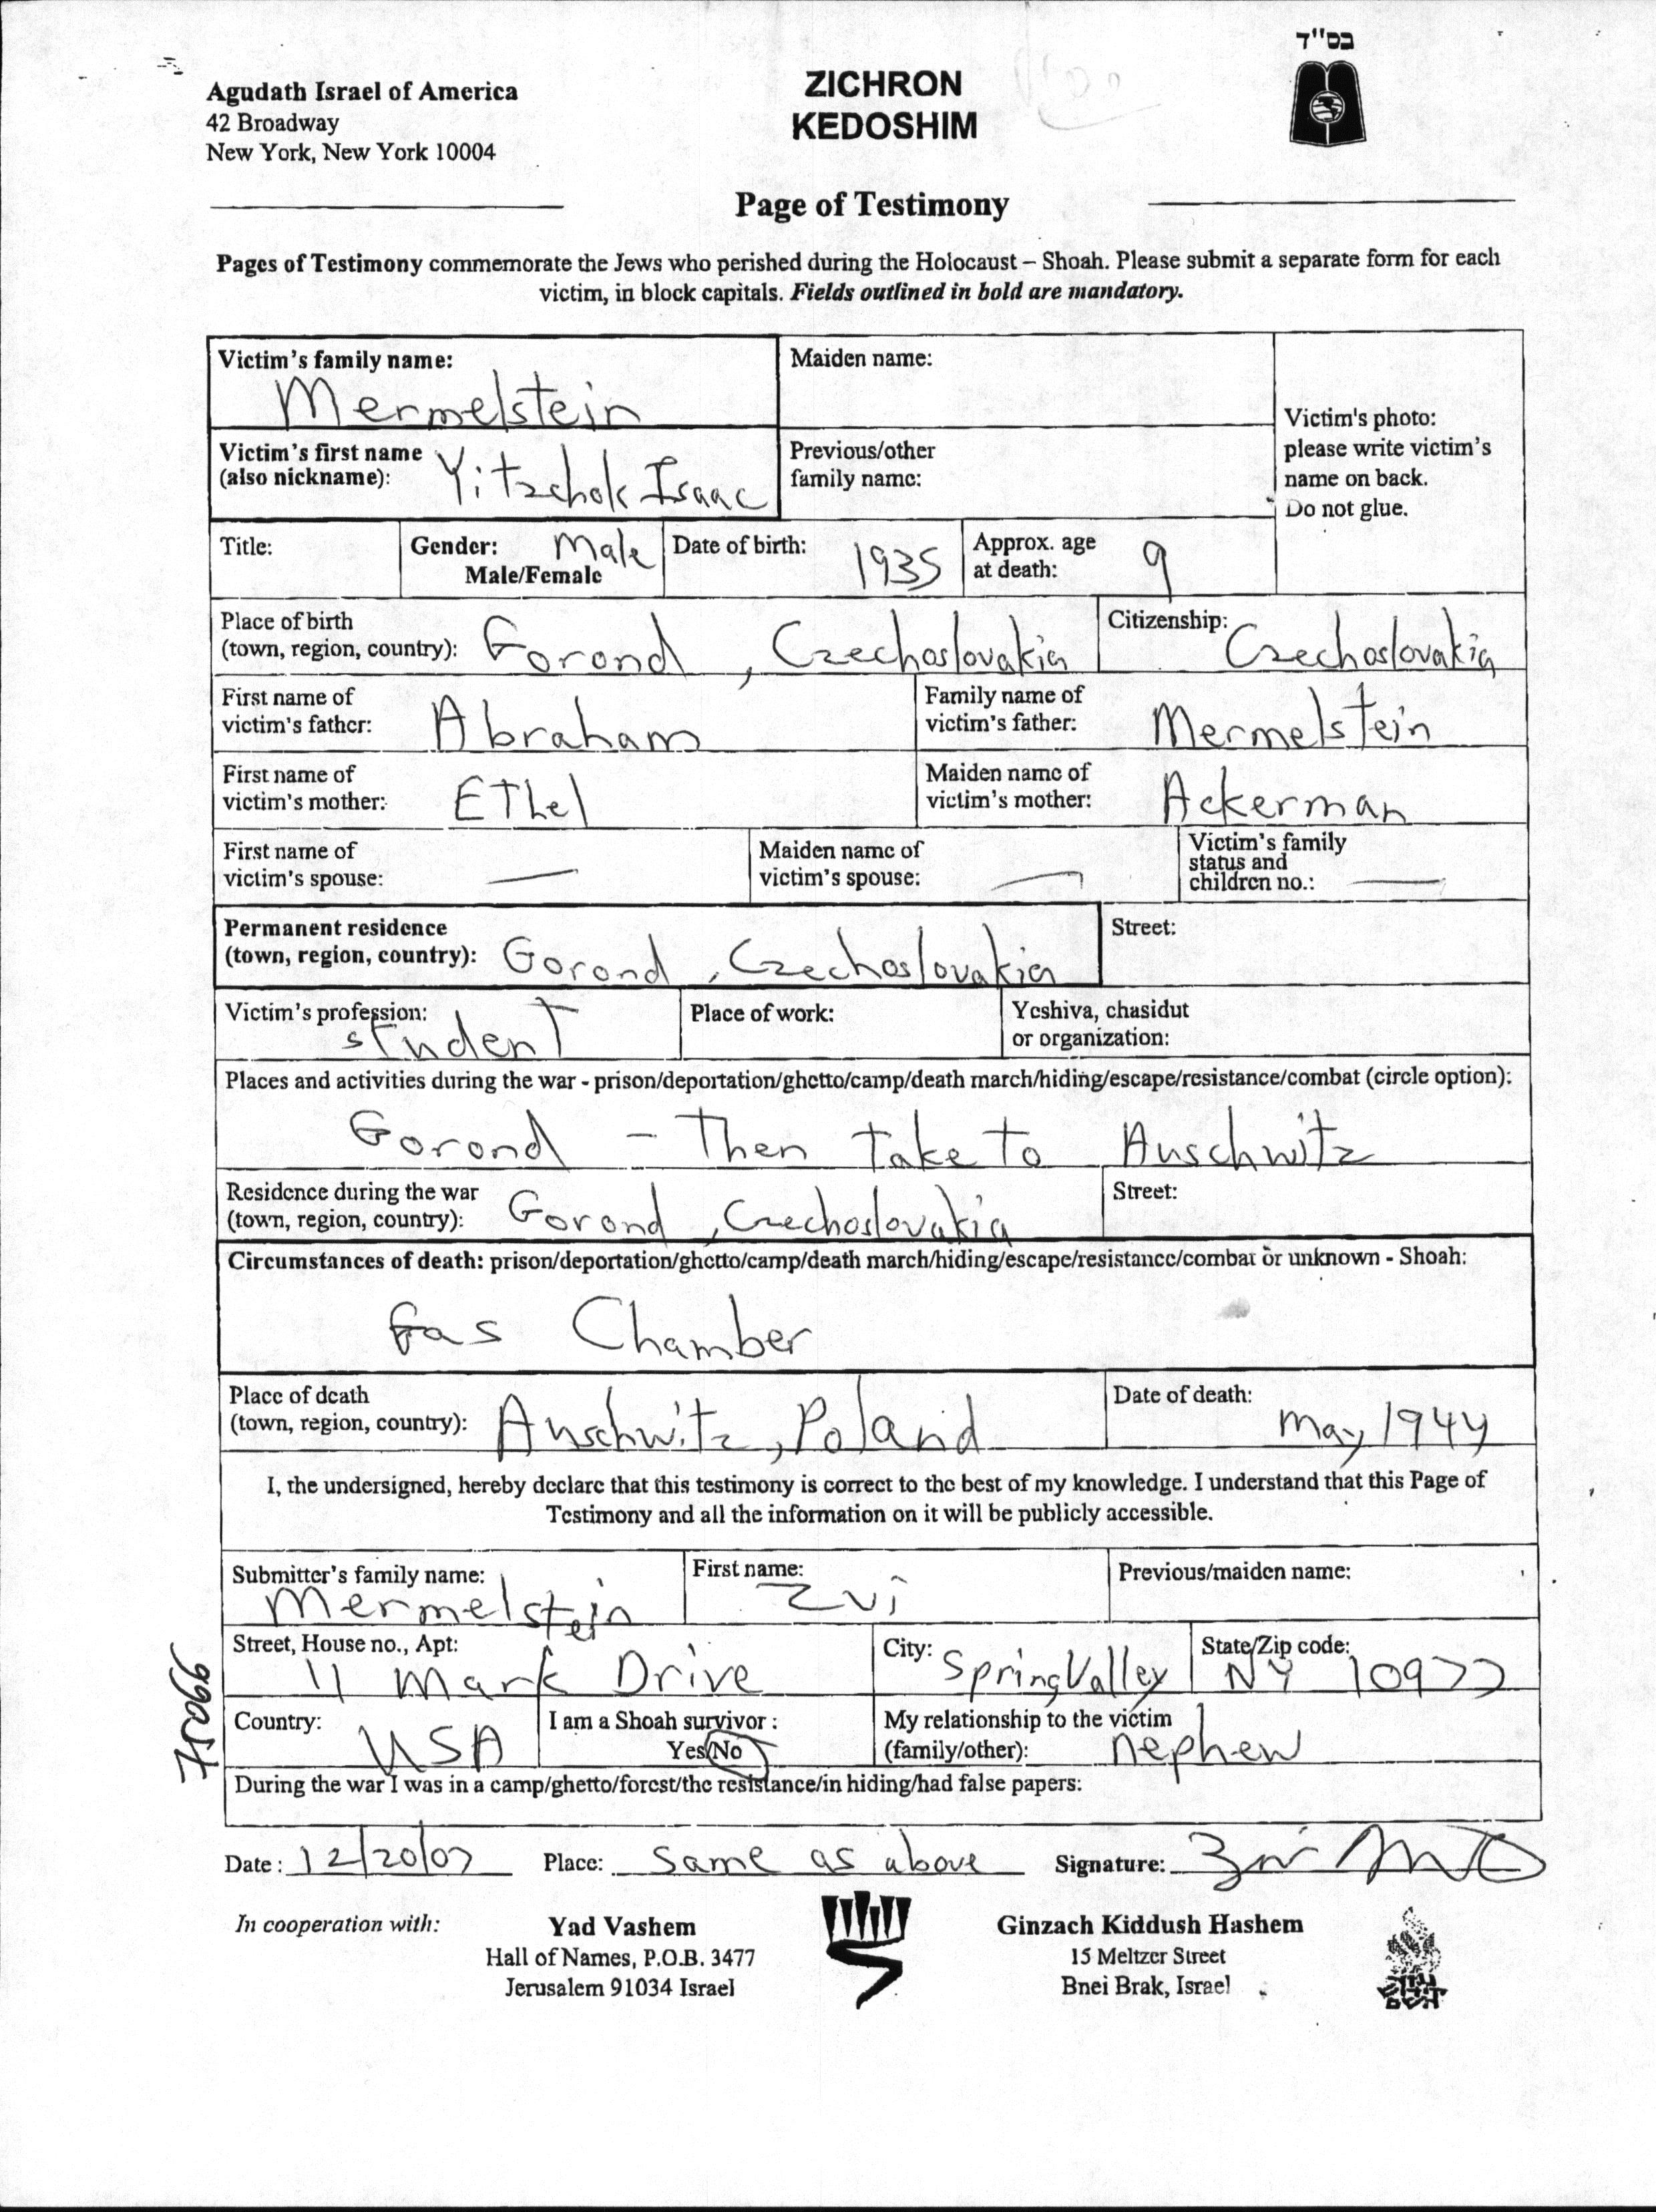 בס"ד
Agudath Israel of America
42 Broadway
New York, New York 10004
ZICHRON
KEDOSHIM
Page of Testimony
Pages of Testimony commemorate the Jews who perished during the Holocaust – Shoah. Please submit a separate form for each
victim, in block capitals. Fields outlined in bold are mandatory.
Victim's family name:
Mermelstein
Maiden name:
Victim's photo:
please write victim's
name on back.
Do not glue.
Victim's first name
(also nickname): Yitzchok Isaac
Previous/other
family name:
Title:
Gender: Male
Male/Female
Date of birth: 1935
Approx. age
at death: 9
Place of birth
(town, region, country): Gorond, Czechoslovakia
Citizenship: Czechoslovakia
First name of
victim's father: Abraham
Family name of
victim's father: Mermelstein
First name of
victim's mother: EThel
Maiden name of
victim's mother: Ackerman
First name of
victim's spouse: —
Maiden name of
victim's spouse: —
Victim's family
status and
children no.: —
Permanent residence
(town, region, country): Gorond, Czechoslovakia
Street:
Victim's profession:
student
Place of work:
Yeshiva, chasidut
or organization:
Places and activities during the war - prison/deportation/ghetto/camp/death march/hiding/escape/resistance/combat (circle option):
Gorond - Then Take To Auschwitz
Residence during the war
(town, region, country): Gorond, Czechoslovakia
Street:
Circumstances of death: prison/deportation/ghetto/camp/death march/hiding/escape/resistance/combat or unknown - Shoah:
Gas Chamber
Place of death
(town, region, country): Auschwitz, Poland
Date of death:
May 1944
I, the undersigned, hereby declare that this testimony is correct to the best of my knowledge. I understand that this Page of
Testimony and all the information on it will be publicly accessible.
Submitter's family name:
Mermelstein
First name:
Zvi
Previous/maiden name:
Street, House no., Apt:
11 Mark Drive
City: Spring Valley
State/Zip code:
NY 10977
Country: USA
I am a Shoah survivor :
Yes/No
My relationship to the victim
(family/other): nephew
During the war I was in a camp/ghetto/forest/the resistance/in hiding/had false papers:
Date: 12/20/07 Place: same as above Signature:
In cooperation with:
Yad Vashem
Hall of Names, P.O.B. 3477
Jerusalem 91034 Israel
Ginzach Kiddush Hashem
15 Meltzer Street
Bnei Brak, Israel